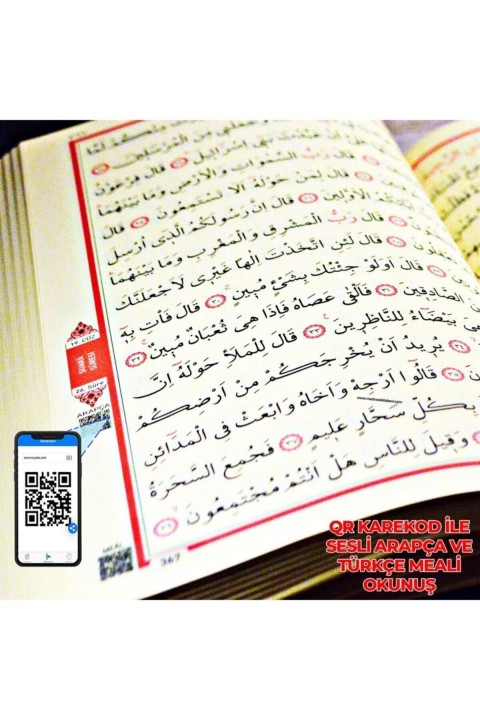 مِنَ الْمُرْسَلِينَ
اَنْ عَبَّدْتَ بَنِٓي اِسْرَٓائِلَ ﴿٢٢﴾ قَالَ فِرْعَوْنُ
قَالَ رَبُّ السَّمٰوَاتِ وَالْاَرْضِ وَمَا بَيْنَهُمَا
قَالَ لِمَنْ حَوْلَهُٓ اَلَا تَسْتَمِعُونَ ﴿٢٥﴾ قَالَ
الْاَوَّلِينَ ﴿٢٦﴾ قَالَ اِنَّ رَسُولَكُمُ الَّذِٓي اُرْسِلَ
قَالَ رَبُّ الْمَشْرِقِ وَالْمَغْرِبِ وَمَا بَيْنَهُمَا
قَالَ لَئِنِ اتَّخَذْتَ اِلٰهًا غَيْرِي لَاَجْعَلَنَّكَ
قَالَ اَوَلَوْ جِئْتُكَ بِشَيْءٍ مُبِينٍ ﴿٣٠﴾ قَالَ فَأْتِ بِهِٓ
الصَّادِقِينَ ﴿٣١﴾ فَاَلْقٰى عَصَاهُ فَاِذَا هِيَ ثُعْبَانٌ مُبِينٌ ﴿٣٢﴾
بَيْضَٓاءُ لِلنَّاظِرِينَ ﴿٣٣﴾ قَالَ لِلْمَلَاِ حَوْلَهُٓ اِنَّ
يُرِيدُ اَنْ يُخْرِجَكُمْ مِنْ اَرْضِكُمْ
قَالُٓوا اَرْجِهْ وَاَخَاهُ وَابْعَثْ فِي الْمَدَٓائِنِ
بِكُلِّ سَحَّارٍ عَلِيمٍ ﴿٣٧﴾ فَجُمِعَ السَّحَرَةُ
وَقِيلَ لِلنَّاسِ هَلْ اَنْتُمْ مُجْتَمِعُونَ ﴿٣٩﴾
19. CÜZ
26. Sûre
ARAPÇA
MEAL
367
QR KAREKOD İLE
SESLİ ARAPÇA VE
TÜRKÇE MEALİ
OKUNUŞ